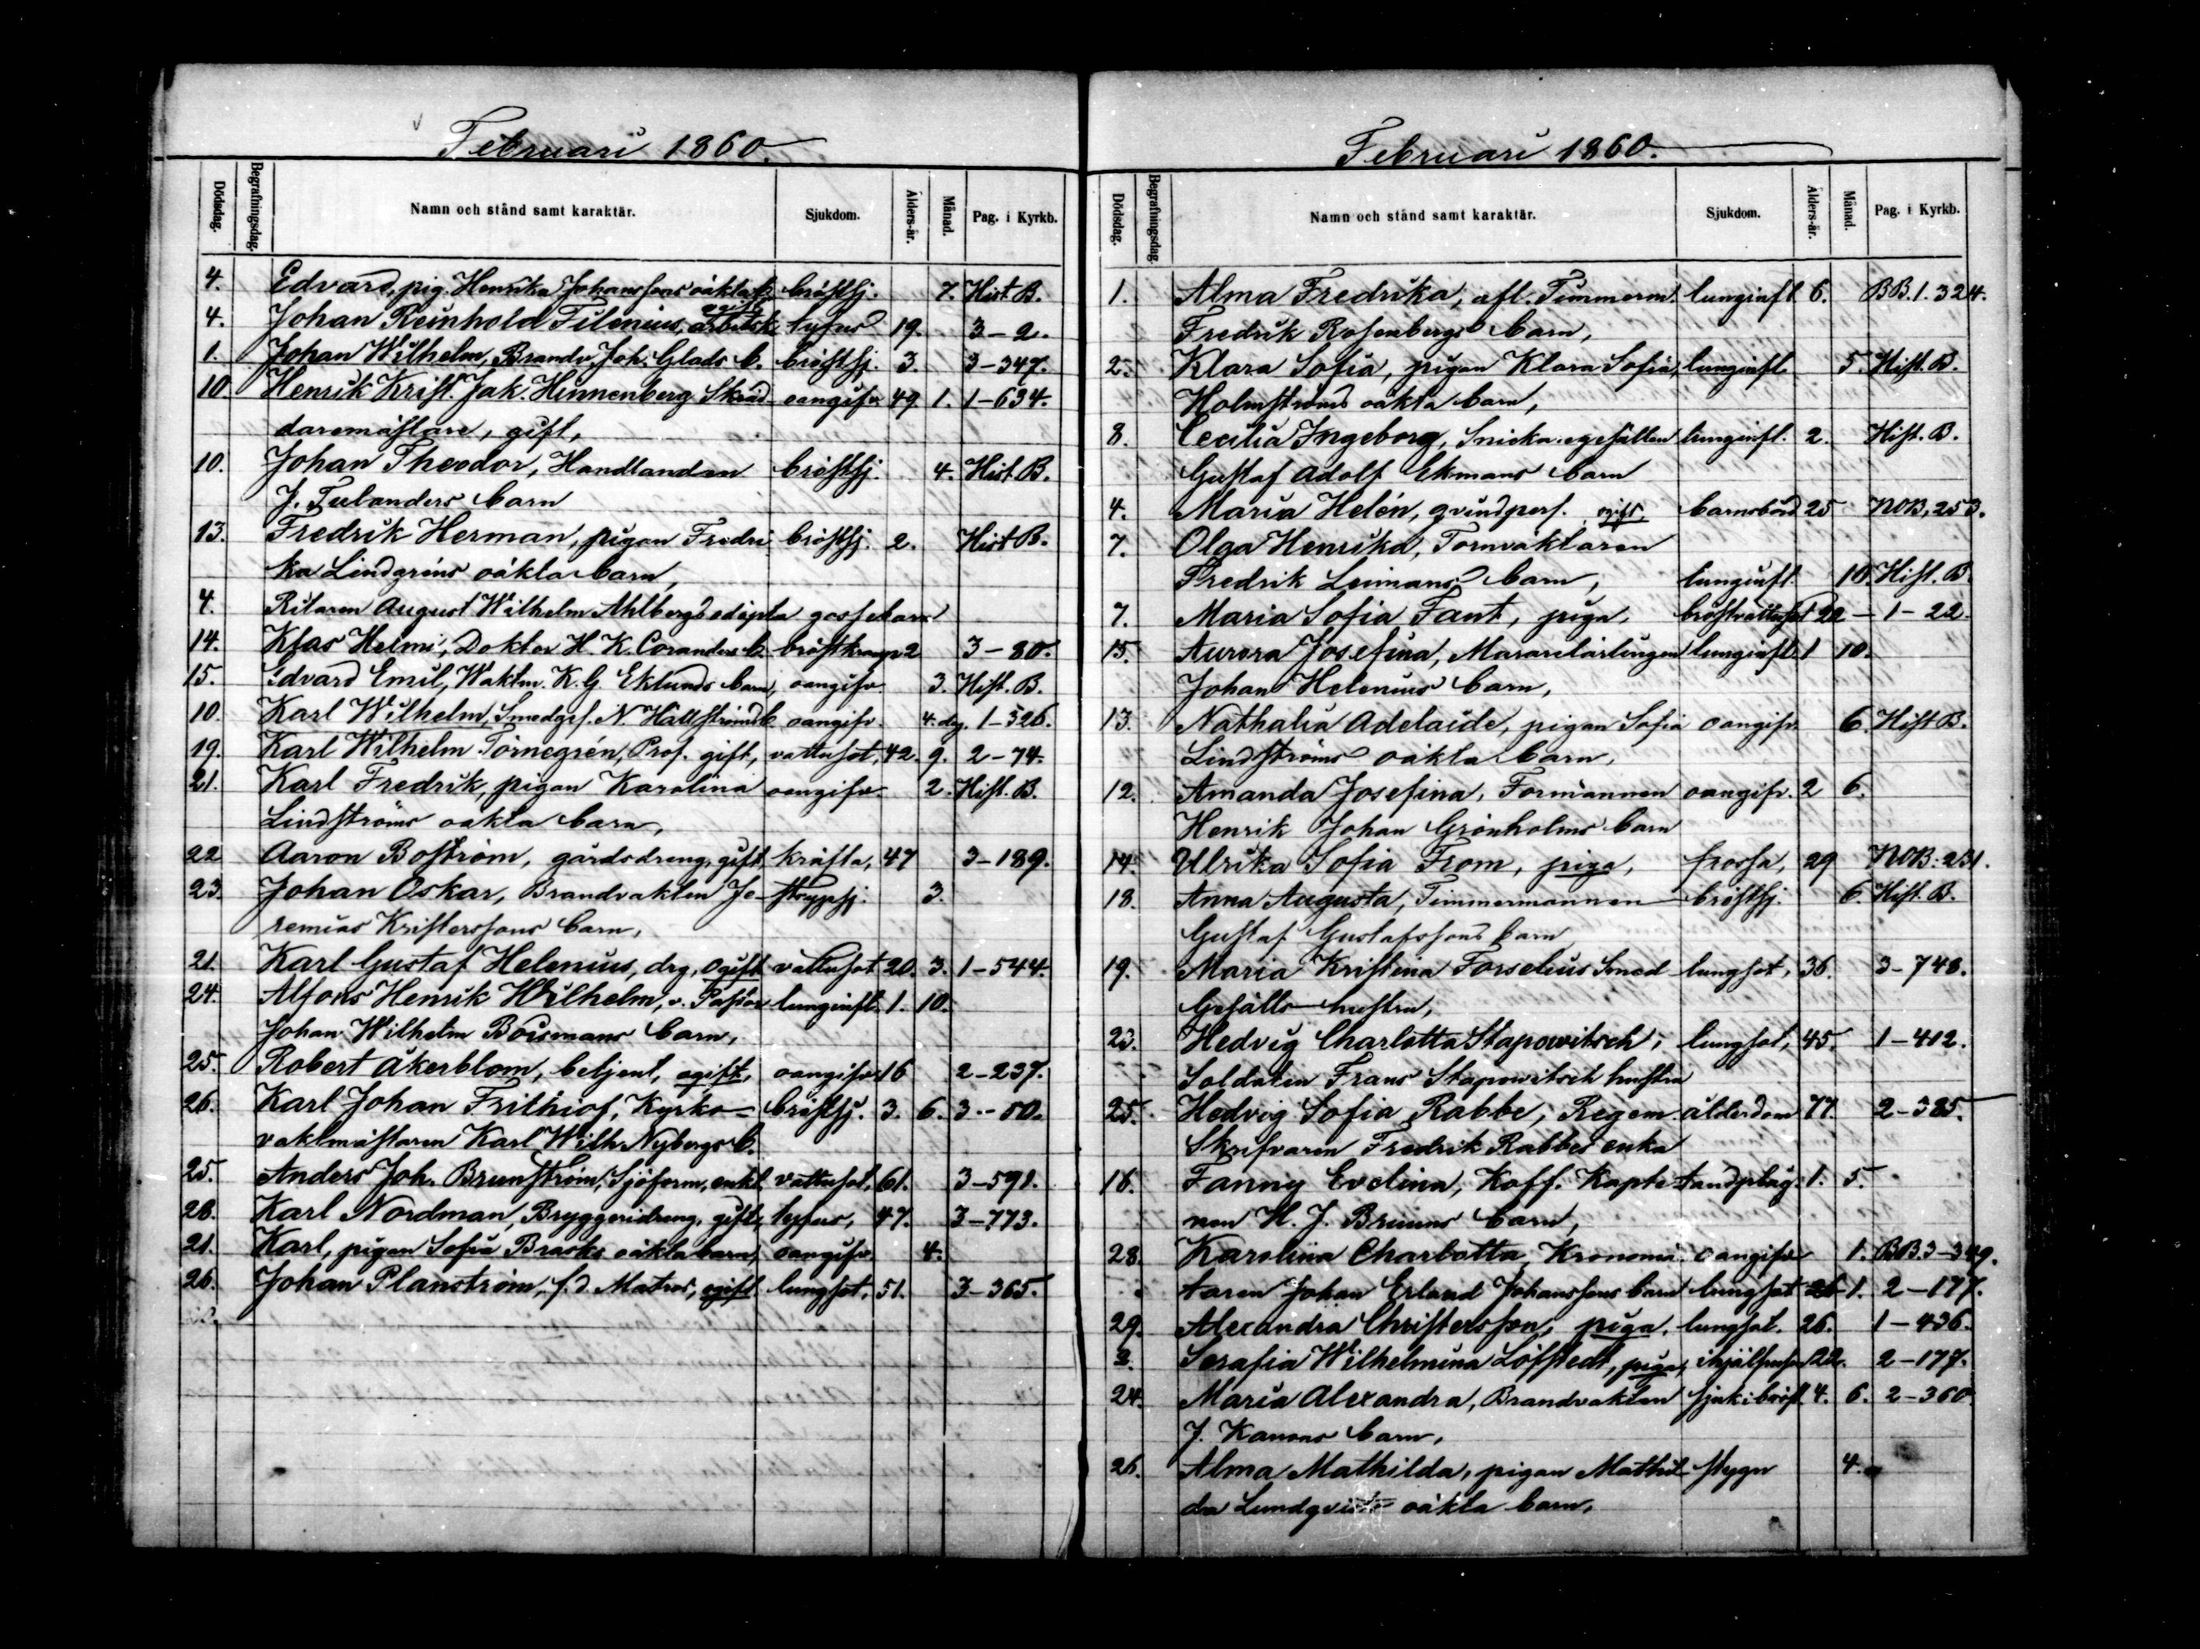 Februari 1860.
Dödsdag. Begrafningsdag. Namn och stånd samt karaktär. Sjukdom. Ålders-år. Månad. Pag. i Kyrkb.
4. Edvard, pig. Henrika Johanssons oäkta b. bröstsj. 7. Hist. B.
4. Johan Reinhold Tilenius, ogift arbetsk. tyfus 19. 3-2.
1. Johan Wilhelm, Brandv. Joh. Glads b. bröstsj. 3. 3-347.
10 Henrik Krist. Jak. Hinnenberg Skräd- oangifv. 49. 1. 1-634.
daremästare, gift,
10. Johan Theodor, Handlanden bröstsj. 4. Hist. B.
J. Tulanders barn
13. Fredrik Herman, pigan Fredri bröstsj. 2. Hist B.
ka Lindgréns oäkta barn,
4. Ritaren August Wilhelm Ahlbergs odöpta gossebarn
14. Klas Helmi, Doktor H. K. Coranders b. bröstkramp 2 3-80.
15. Edvard Emil, Waktm. K. G. Eklunds barn, oangifv. 3. Hist. B.
10. Karl Wilhelm, Smedges. N. Hällströms b. oangifv. 4. dg. 1-526.
19. Karl Wilhelm Törnegrén, Prof. gift, vattusot, 42. 9. 2-74.
21. Karl Fredrik, pigan Karolina oangifv. 2. Hist. B.
Lindströms oäkta barn,
22 Aaron Boström, gårdsdreng, gift kräfta, 47 3-189.
23. Johan Oskar, Brandvakten Je- strypsj. 3.
remias Kristerssons barn,
21. Karl Gustaf Helenius, drg, ogift vattusot 20. 3. 1-544.
24. Alfons Henrik Wilhelm, v. Pastor lunginfl. 1. 10.
Johan Wilhelm Boismans barn,
25. Robert Åkerblom, betjent, ogift, oangifv. 16 2-237.
26. Karl Johan Frithiof, Kyrko- bröstsj. 3. 6. 3-50.
vaktmästaren Karl Wilh. Nybergs b.
25. Anders Joh. Brunström, Sjöförm, enkl. vattusot, 61. 3-591.
28. Karl Nordman, Bryggeridreng, gift, tyfus, 47. 3-773.
21. Karl, pigan Sofia Brasks oäkta barn, oangifv. 4.
26. Johan Planström, f.d. Matros, ogift lungsot, 51. 3-365.
Februari 1860.
Dödsdag. Begrafningsdag. Namn och stånd samt karaktär. Sjukdom. Ålders-år. Månad. Pag. i Kyrkb.
1. Alma Fredrika, afl. Timmerm. lunginfl. 6. BB. 1. 324.
Fredrik Rosenbergs barn,
2. Klara Sofia, pigan Klara Sofia, lunginfl. 5. Hist. B.
Holmströms oäkta barn,
8. Cecilia Ingeborg, Snickaregesällen lunginfl. 2. Hist. B.
Gustaf Adolf Ekmans barn
4. Maria Helén, qvindpers. ogift, barnsbörd 25 NOB, 253.
7. Olga Henrika, Tornväktaren
Fredrik Leimans barn, lunginfl. 10. Hist. B.
7. Maria Sofia Fant, piga, bröstvattusot 22 - 1-22.
15. Aurora Josefina, Murarelärlingen lunginfl. 1 10.
Johan Helenius barn,
13. Nathalia Adelaide, pigan Sofia oangifv. 6. Hist B.
Lindströms oäkta barn,
12. Amanda Josefina, Formannen oangifv. 2 6.
Henrik Johan Grönholms barn
14. Ulrika Sofia From, piga, frossa, 29 NOB. 231.
18. Anna Augusta, Timmermannen bröstsj. 6. Hist. B.
Gustaf Gustafssons barn
19. Maria Kristina Forselius Smed- lungsot, 36. 3-748.
Gesälls hustru,
23. Hedvig Charlotta Stapowitsch, lungsot, 45. 1-412.
Soldaten Frans Stapowitsch hustru
25. Hedvig Sofia Rabbe, Regem. ålderdom 77. 2-385.
Skrifvaren Fredrik Rabbes enka
16. Fanny Evelina, Koff. Kapte- tandplåg. 1. 5.
nen H. J. Bruuns barn,
28. Karolina Charlotta, Kronomä- oangifv. 1. BB. 3-349.
taren Johan Erland Johanssons barn lungsot 26 1. 2-177.
29. Alexandra Christersson, piga, lungsot. 26. 1-436.
3. Serafia Wilhelmina Löfstedt, piga, 22. 2-177.
24. Maria Alexandra, Brandvakten sjuk i bröst 4. 6. 2-360
J. Kanons barn,
26. Alma Mathilda, pigan Mathil- stygn 4.
da Lundqvists oäkta barn,